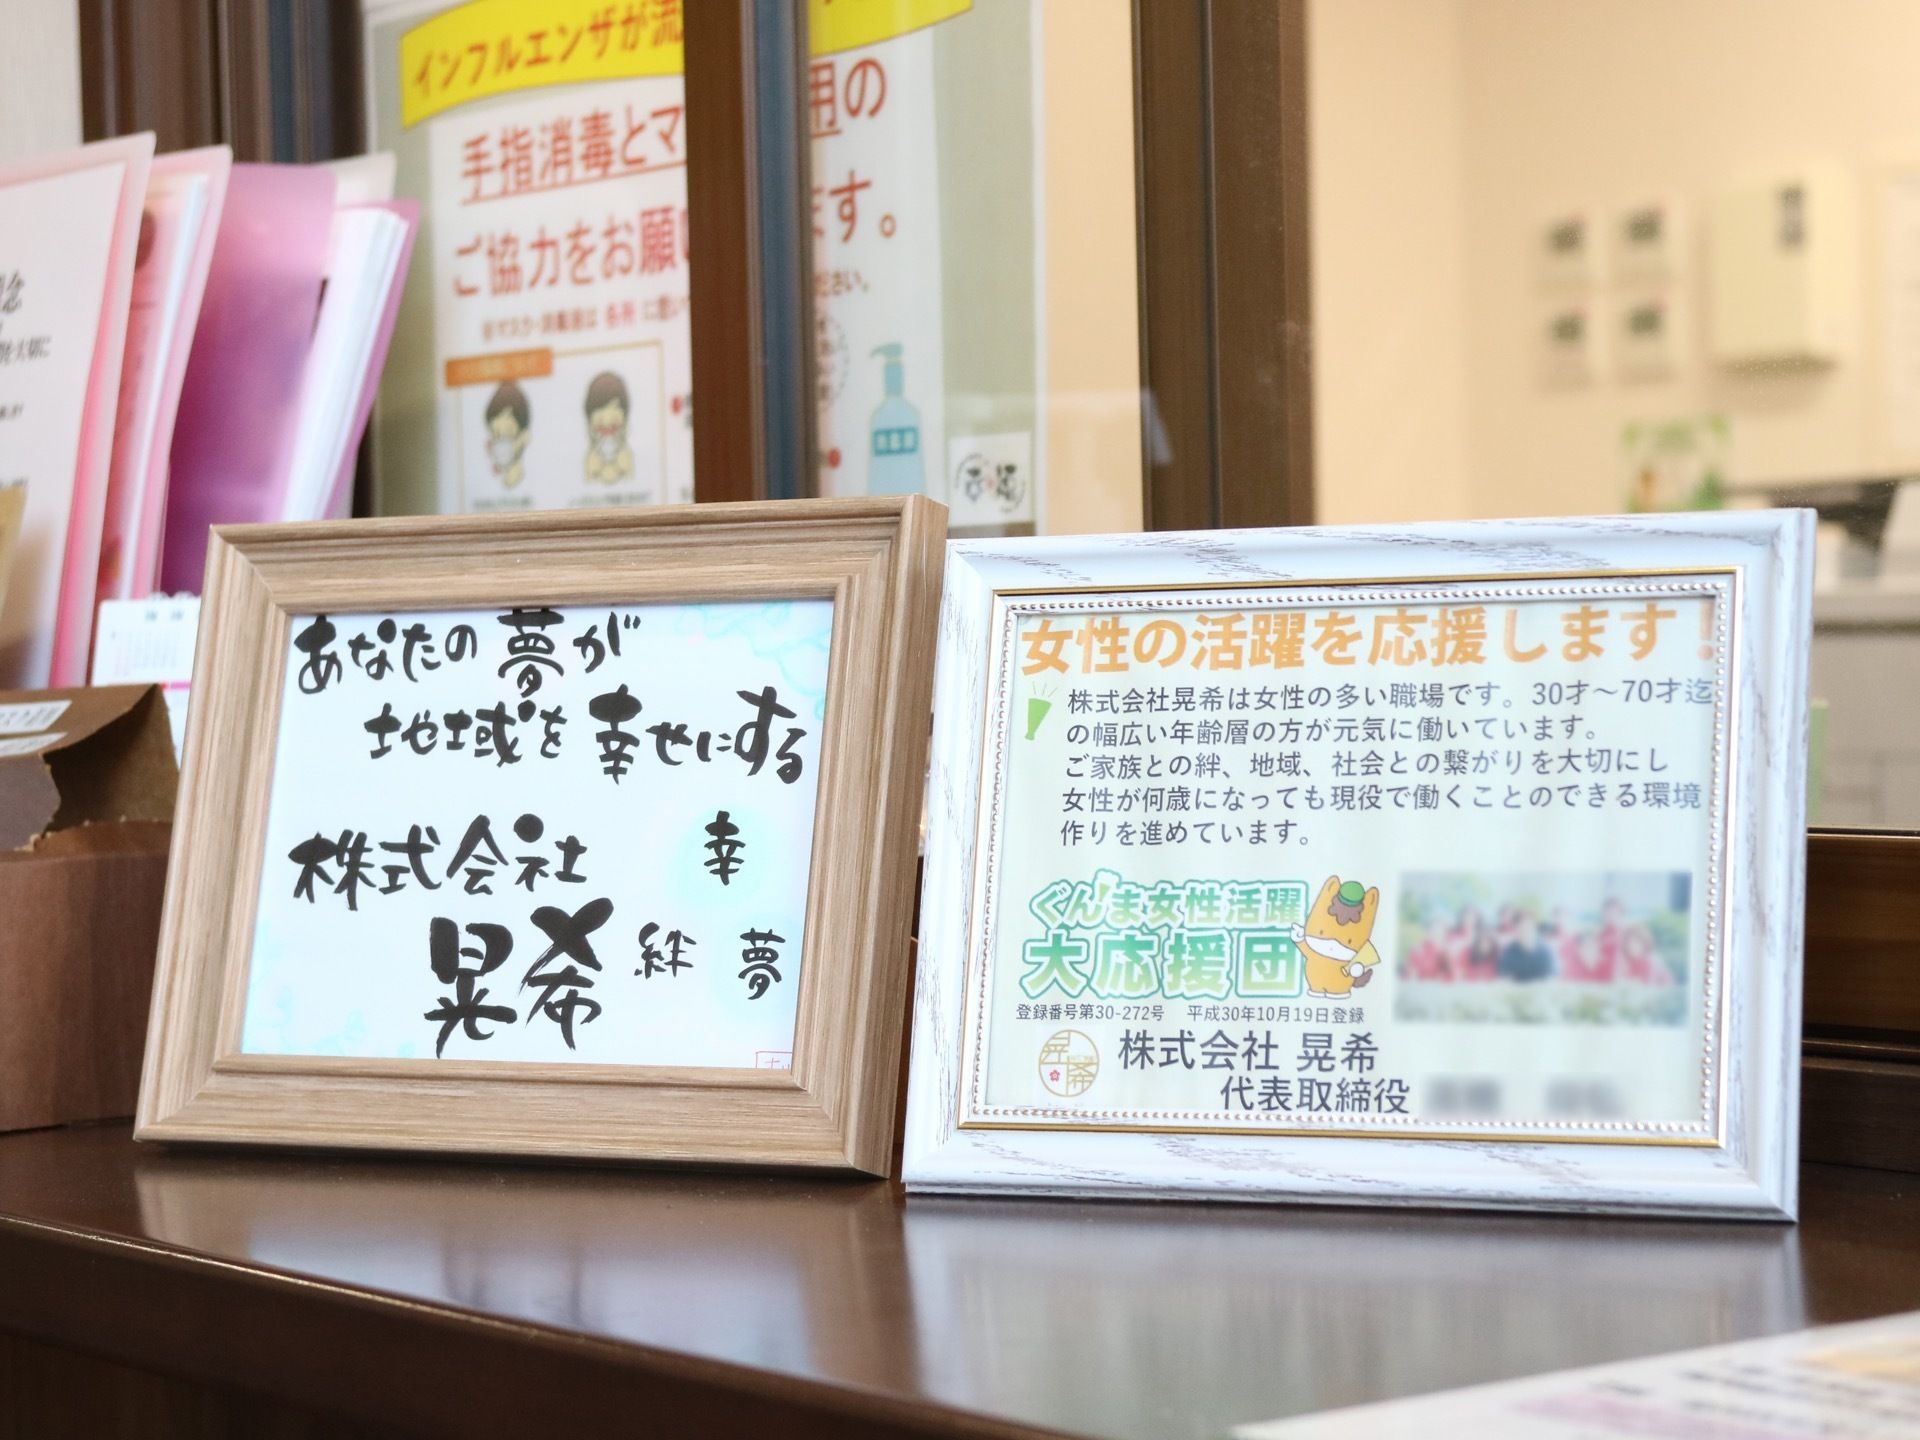 インフルエンザが流
手指消毒とマ
用の
ご協力をお願い
ます。
ださい。
あなたの夢が
地域を幸せにする
株式会社
幸
晃希
絆
夢
女性の活躍を応援します!
株式会社晃希は女性の多い職場です。30才～70才迄
の幅広い年齢層の方が元気に働いています。
ご家族との絆、地域、社会との繋がりを大切にし
女性が何歳になっても現役で働くことのできる環境
作りを進めています。
ぐんま女性活躍
大応援団
登録番号第30-272号 平成30年10月19日登録
晃希
株式会社 晃希
代表取締役